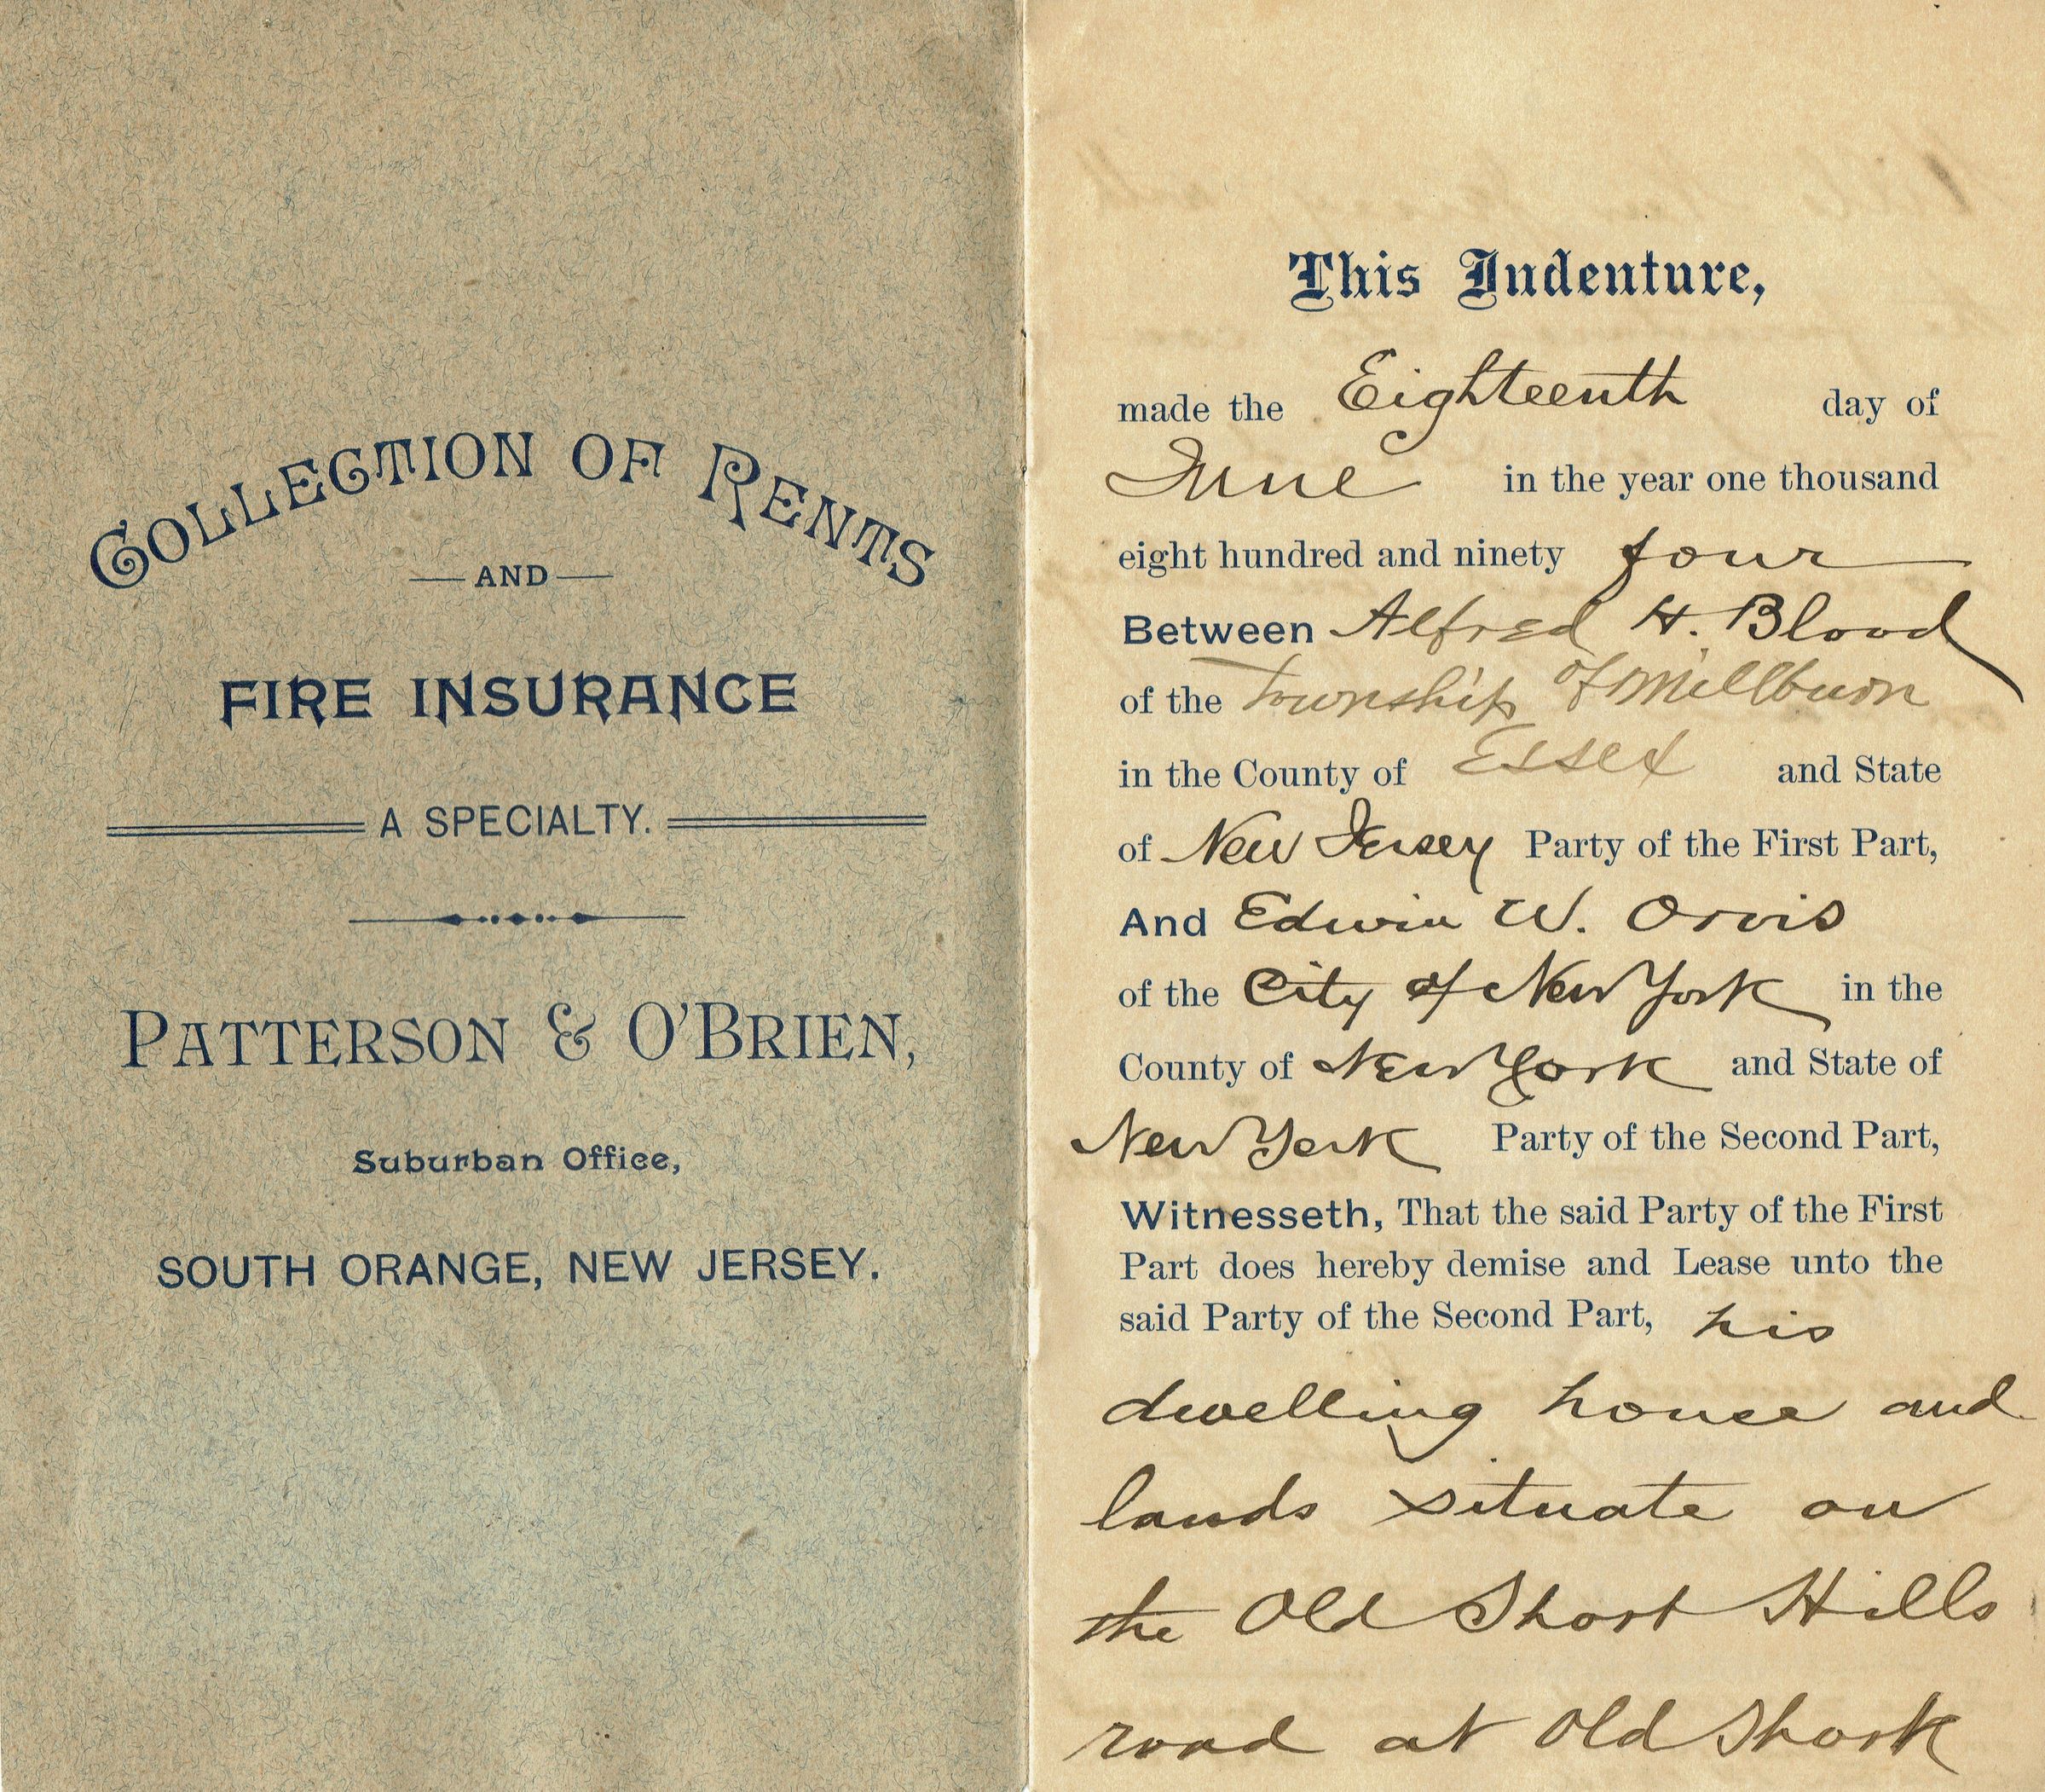 COLLECTION OF RENTS
AND
FIRE INSURANCE
A SPECIALTY.
PATTERSON & O'BRIEN,
Suburban Office,
SOUTH ORANGE, NEW JERSEY.
This Indenture,
made the Eighteenth day of
June in the year one thousand
eight hundred and ninety four
Between Alfred H. Blood
of the Township of Millburn
in the County of Essex and State
of New Jersey Party of the First Part,
And Edwin W. Orvis
of the City of New York in the
County of New York and State of
New York Party of the Second Part,
Witnesseth, That the said Party of the First
Part does hereby demise and Lease unto the
said Party of the Second Part, his
dwelling house and
lands situate on
the Old Short Hills
road at Old Short